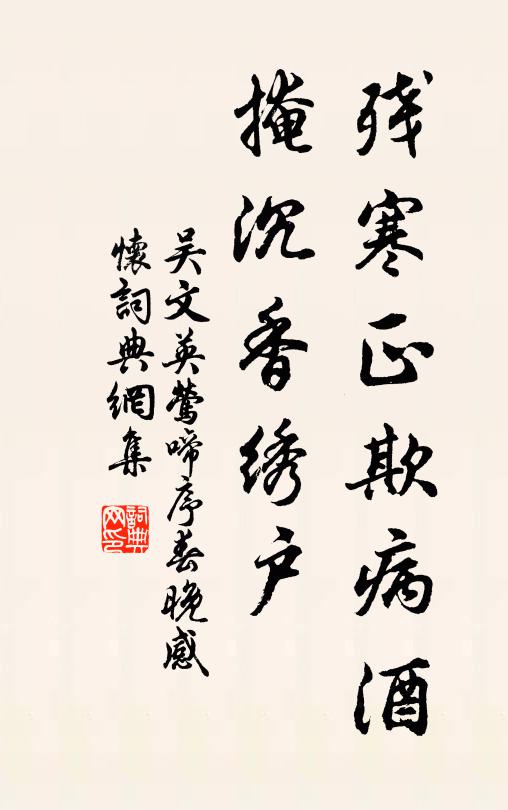 残寒正欺病酒
掩沉香绣户
吴文英莺啼序春晚感
懷詞典網集
詞典
网印